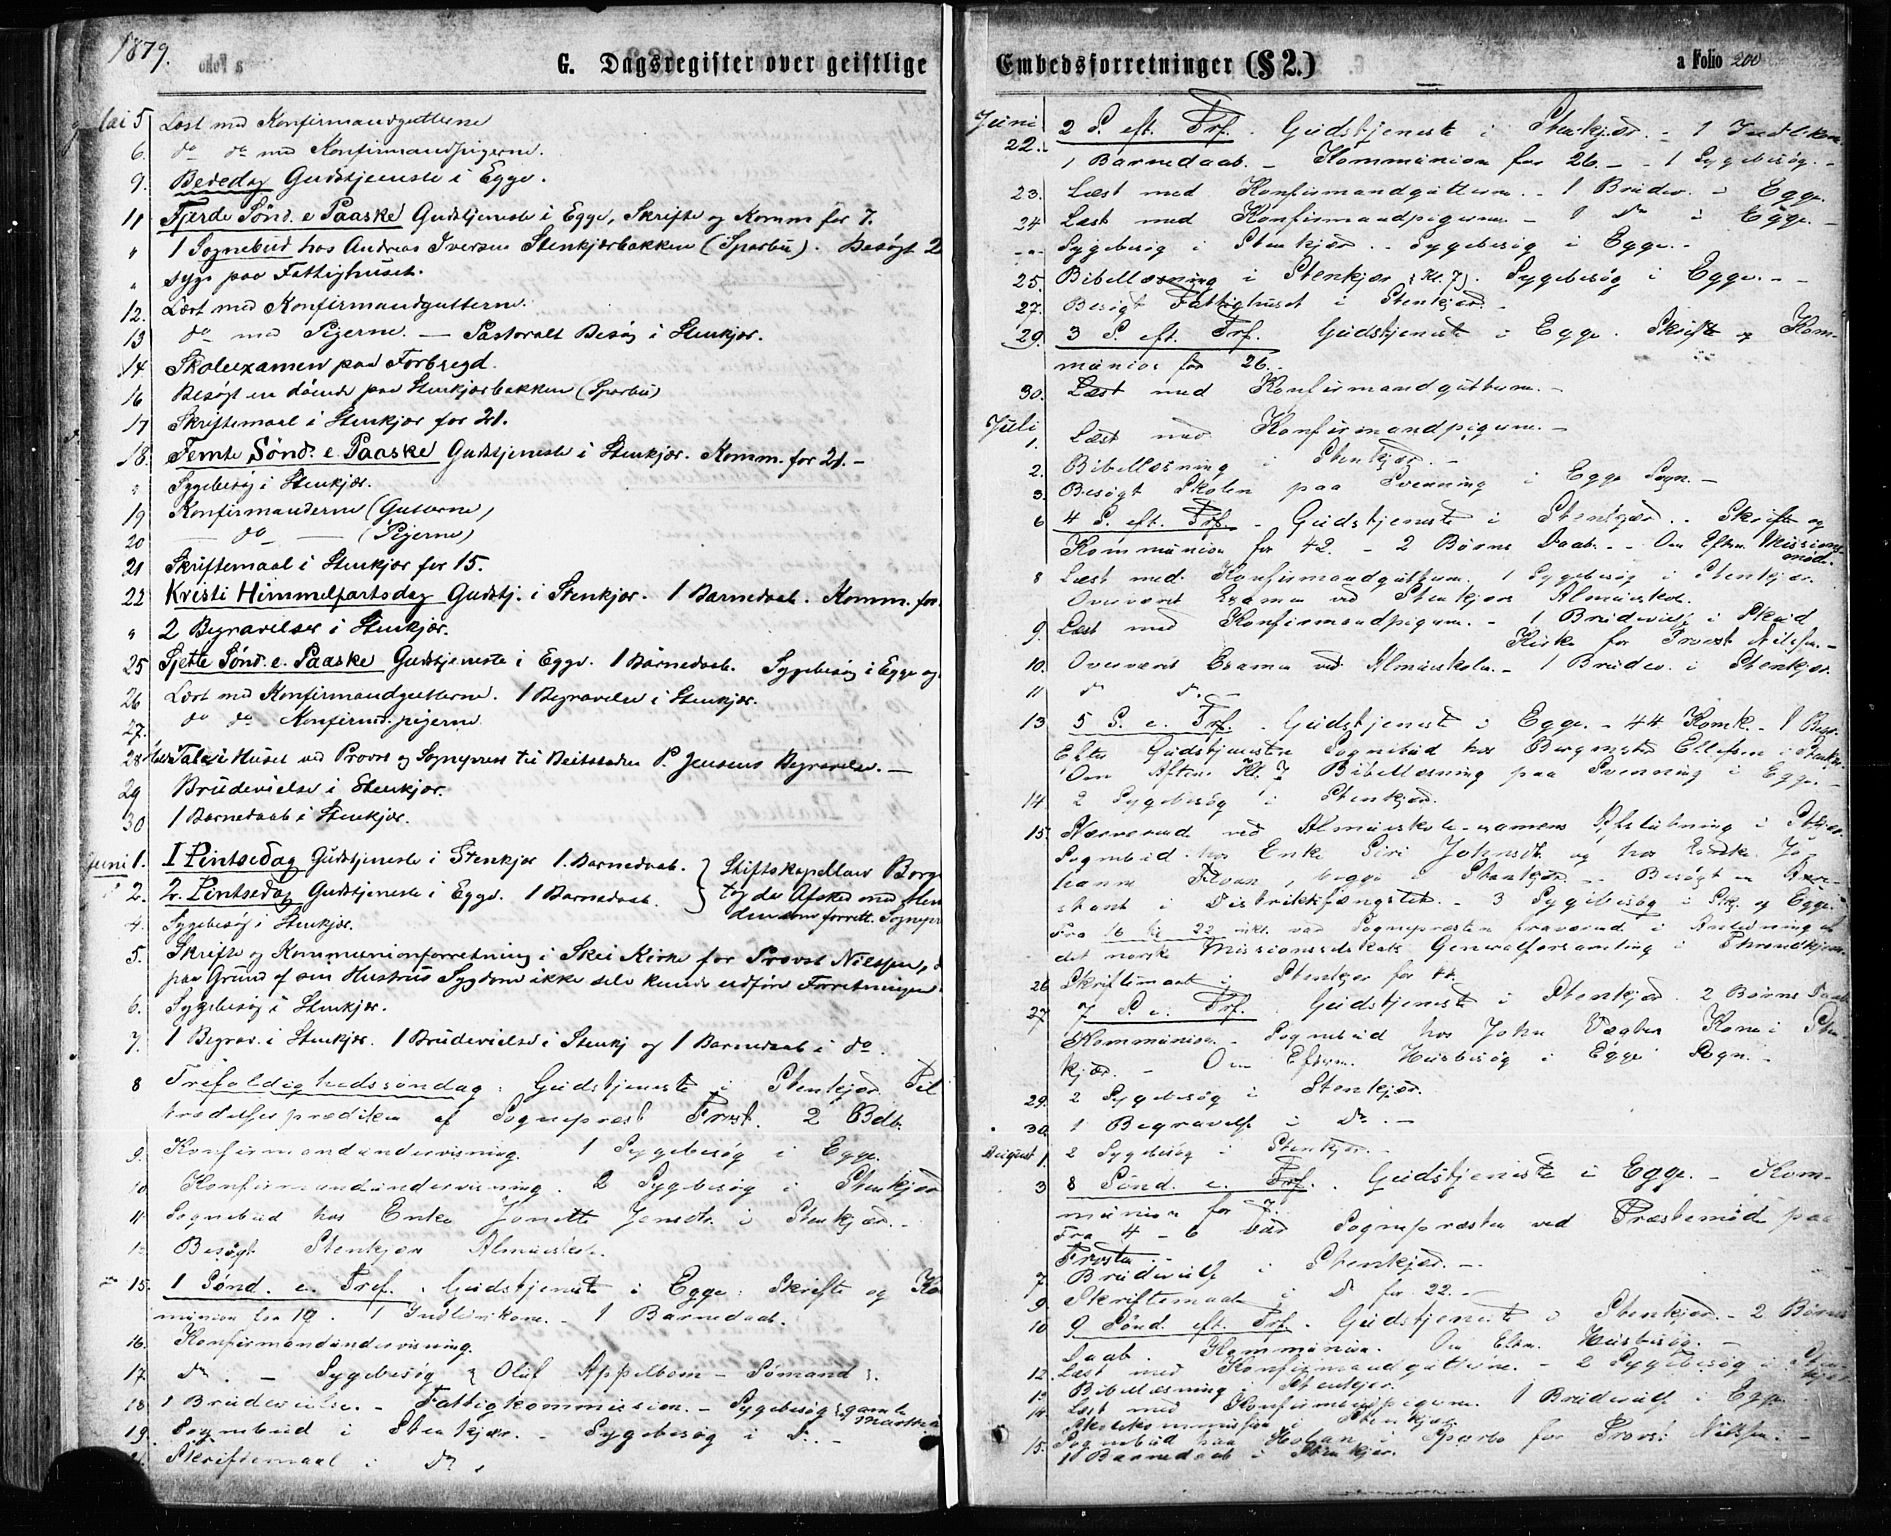 1879.
G. Dagsregister over geistlige
Mai 5 Læst med Konfirmandgutterne
6. do do med Konfirmandpigerne.
9. Bededag Gudstjeneste i Egge.
11 Fjerde Sønd. e Paaske Gudstjeneste i Egge, Skrifte og Komm for 7.
" 1 Sognebud hos Andreas Iversen Stenkjærbakken (Sparbu). Besøgt 2
" syge paa Fattighuset.
12. Læst med Konfirmandgutterne.
13 do med Pigerne. — Pastoralt Besøg i Stenkjær.
14 Skoleexamen paa Forbregd.
16 Besøgt en døende paa Stenkjærbakken (Sparbu)
17 Skriftemaal i Stenkjær for 21.
18. Femte Sønd. e. Paaske Gudstjeneste i Stenkjær. Komm. for 21. —
" Sygebesøg i Stenkjær.
19 Konfirmanderne (Gutterne)
20 — do — (Pigerne)
21 Skriftemaal i Stenkjær for 15.
22 Kristi Himmelfartsdag Gudstj. i Stenkjær. 1 Barnedaab. Komm. for
" 2 Begravelser i Stenkjær.
25 Sjette Sønd. e. Paaske Gudstjeneste i Egge. 1 Barnedaab. Sygebesøg i Egge og
26 Læst med Konfirmandgutterne. 1 Begravelse i Stenkjær.
27. do do Konfirmd.pigerne
28 Tale i Huset ved Provst og Sognepræst til Beitstaden P. Jensens Begravelse. —
29 Brudevielse i Stenkjær.
30 1 Barnedaab i Stenkjær.
Juni 1. I Pintsedag Gudstjeneste i Stenkjær 1 Barnedaab. } Stiftskapellan Borge
2. 2. Pintsedag Gudstjeneste i Egge. 1 Barnedaab. } tog der Afsked med Men
4. Sygebesøg i Stenkjær. den som forrett. Sognepr
5. Skrifte og Kommunionforretning i Skei Kirke for Provst Nilssen, d
paa Grund af sin Hustrus Sygdom ikke selv kunde udføre Forretningen
6. Sygebesøg i Stenkjær.
7. 1 Begrav. i Stenkjær. 1 Brudevielse i Stenkj og 1 Barnedaab i do.
8 Trefoldighedssøndag: Gudstjeneste i Stenkjær Til
trædelsesprædiken af Sognepræst Frost. 2 Bdb.
9. Konfirmandundervisning. 1 Sygebesøg i Egge.
10 Konfirmandundervisning. 2 Sygebesøg i Stenkjær
11 Sognebud hos Enke Jonette Jensdtr i Stenkjær. —
12 Besøgt Stenkjær Almueskole.
15. 1 Sønd. e. Tref. Gudstjeneste i Egge: Skrifte og Ko
munion for 19. 1 Introdukon. — 1 Barnedaab.
16. Konfirmandundervisning.
17. do. — Sygebesøg { Oluf Appelbom — Sømand }.
18. 1 Brudevielse. — Fattigkommission. — Sygebesøg { gamle
19. Sognebud i Stenkjær. — Sygebesøg i do. —
21. Skriftemaal i do.
Embedsforretninger (§ 2.)
a Folio 200
Juni 2 S. eft. Trf. Gudstjeneste i Stenkjær. — 1
22. 1 Barnedaab. — Kommunion for 26. — 1 Sygebesøg. —
23. Læst med Konfirmandgutterne. — 1 Brudev. i Egge.
24 Læst med Konfirmandpigerne — 1 do i Egge. —
-"- Sygebesøg i Stenkjær. — Sygebesøg i Egge. —
25. Bibellæsning i Stenkjær (Kl. 7). Sygebesøg i Egge. —
27. Besøgt Fattighuset i Stenkjær. —
29. 3 S. eft. Trf. Gudstjeneste i Egge. Skrifte og Kom-
munion for 26. —
30. Læst med Konfirmandgutterne. —
Juli
1. Læst med Konfirmandpigerne. —
2. Bibellæsning i Stenkjær. —
3. Besøgt Skolen paa Svenning i Egge Sogn. —
6 4 S. eft. Trf. — Gudstjeneste i Stenkjær. — Skrifte og
Kommunion for 42. — 2 Børns Daab. — Om Eftm Missions-
møde.
8 Læst med Konfirmandgutterne. 1 Sygebesøg i Stenkjær.
Overværet Examen ved Stenkjær Almueskole.
9. Læst med Konfirmandpigerne. — 1 Brudeviels i Skeid
Kirke for Provst Nilssen. —
10. Overværet Examen ved Almueskolen. — 1 Brudev. i Stenkjær.
11 do do. —
13 5 S. e. Trf. Gudstjeneste i Egge. — 44 Komk. — 1 Begr.
Efter Gudstjenesten Sognebud hos Bergmester Ellefsen i Stenkjær.
Om Aften Kl. 7 Bibellæsning paa Svenning i Egge. —
14. 2 Sygebesøg i Stenkjær.
15. Nærværende ved Almueskole-examens Afslutning i Stkjær.
Sognebud hos Enke Siri Johnsdtr og hos Enke Jo-
hanna, begge i Stenkjær. — Besøgt en
i Distriktsfængslet. — 3 Sygebesøg i Stkj. og Egge.
Fra 16 til 22 inkl. var Sognepræsten fraværende i Anledning af
det norske Missionsselskabs Generalforsamling i Throndhjem.
26. Skriftemaal i Stenkjær for
27 7 S. e. Trf. Gudstjeneste i Stenkjær. 2 Børns Daab
Kommunion. — Sognebud hos John Vægters Kone i Sten
kjær. — Om Eftm. Husbesøg i Egge Sogn. —
29. 2 Sygebesøg i Stenkjær.
30. 1 Begravelse i do. —
August 1. 2 Sygebesøg i Stenkjær. —
3 8 Sønd. e. Trf. Gudstjeneste i Egge. — Kom-
munion for 7.
Fra 4 — 6 var Sognepræsten ved Præstemøde paa
Frosta. —
7 Brudevielse i Stenkjær. —
9 Skriftemaal i do for 22. —
10 9 Sønd. eft. Trf. Gudstjeneste i Stenkjær. — 2 Børns
Daab. Kommunion. Om Eftm. Husbesøg. —
12. Læst med Konfirmandgutterne. — 2 Sygebesøg i Sten
kjær
13. Bibellæsning i Stenkjær.
14. Læst med Konfirmandpigerne. 1 Brudevielse i Egge
Skolekommission i Stenkjær.
15. Sognebud paa i Sparbo for Provst Nilssen. —
1 Barnedaab i Stenkjær.